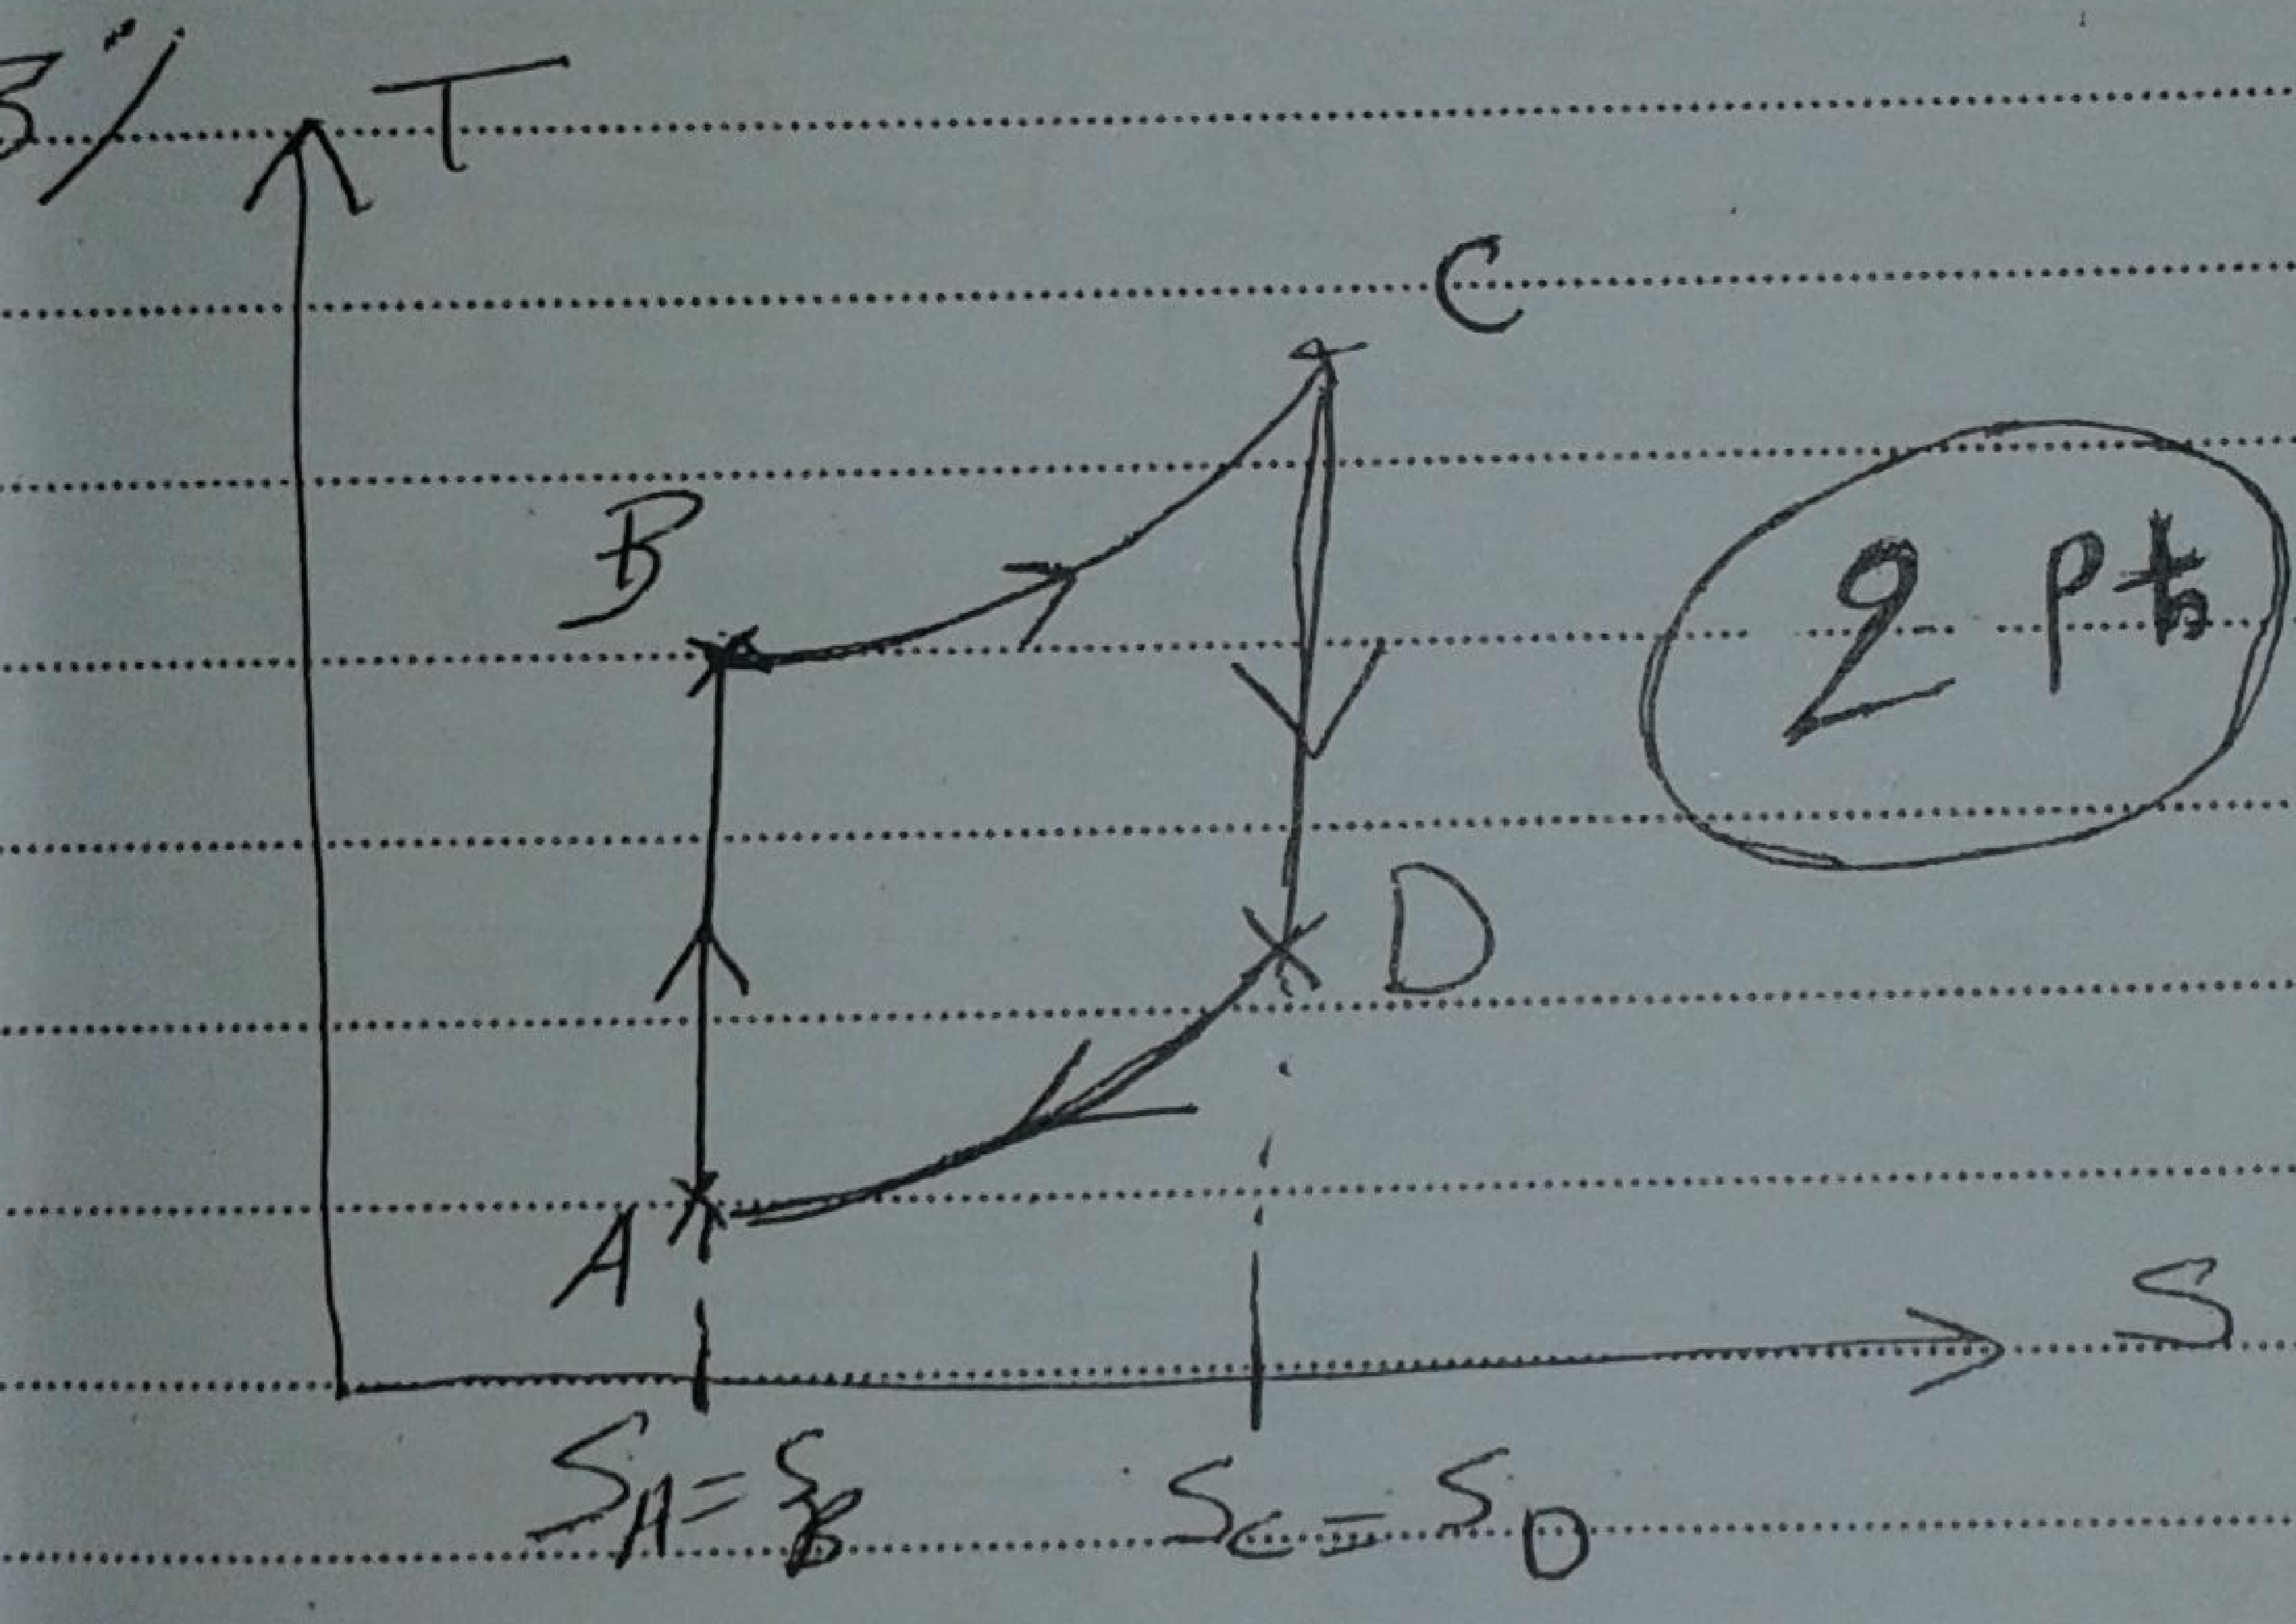 3°/
T
C
B
2 pts
D
A
S
S_A = S_B
S_C = S_D